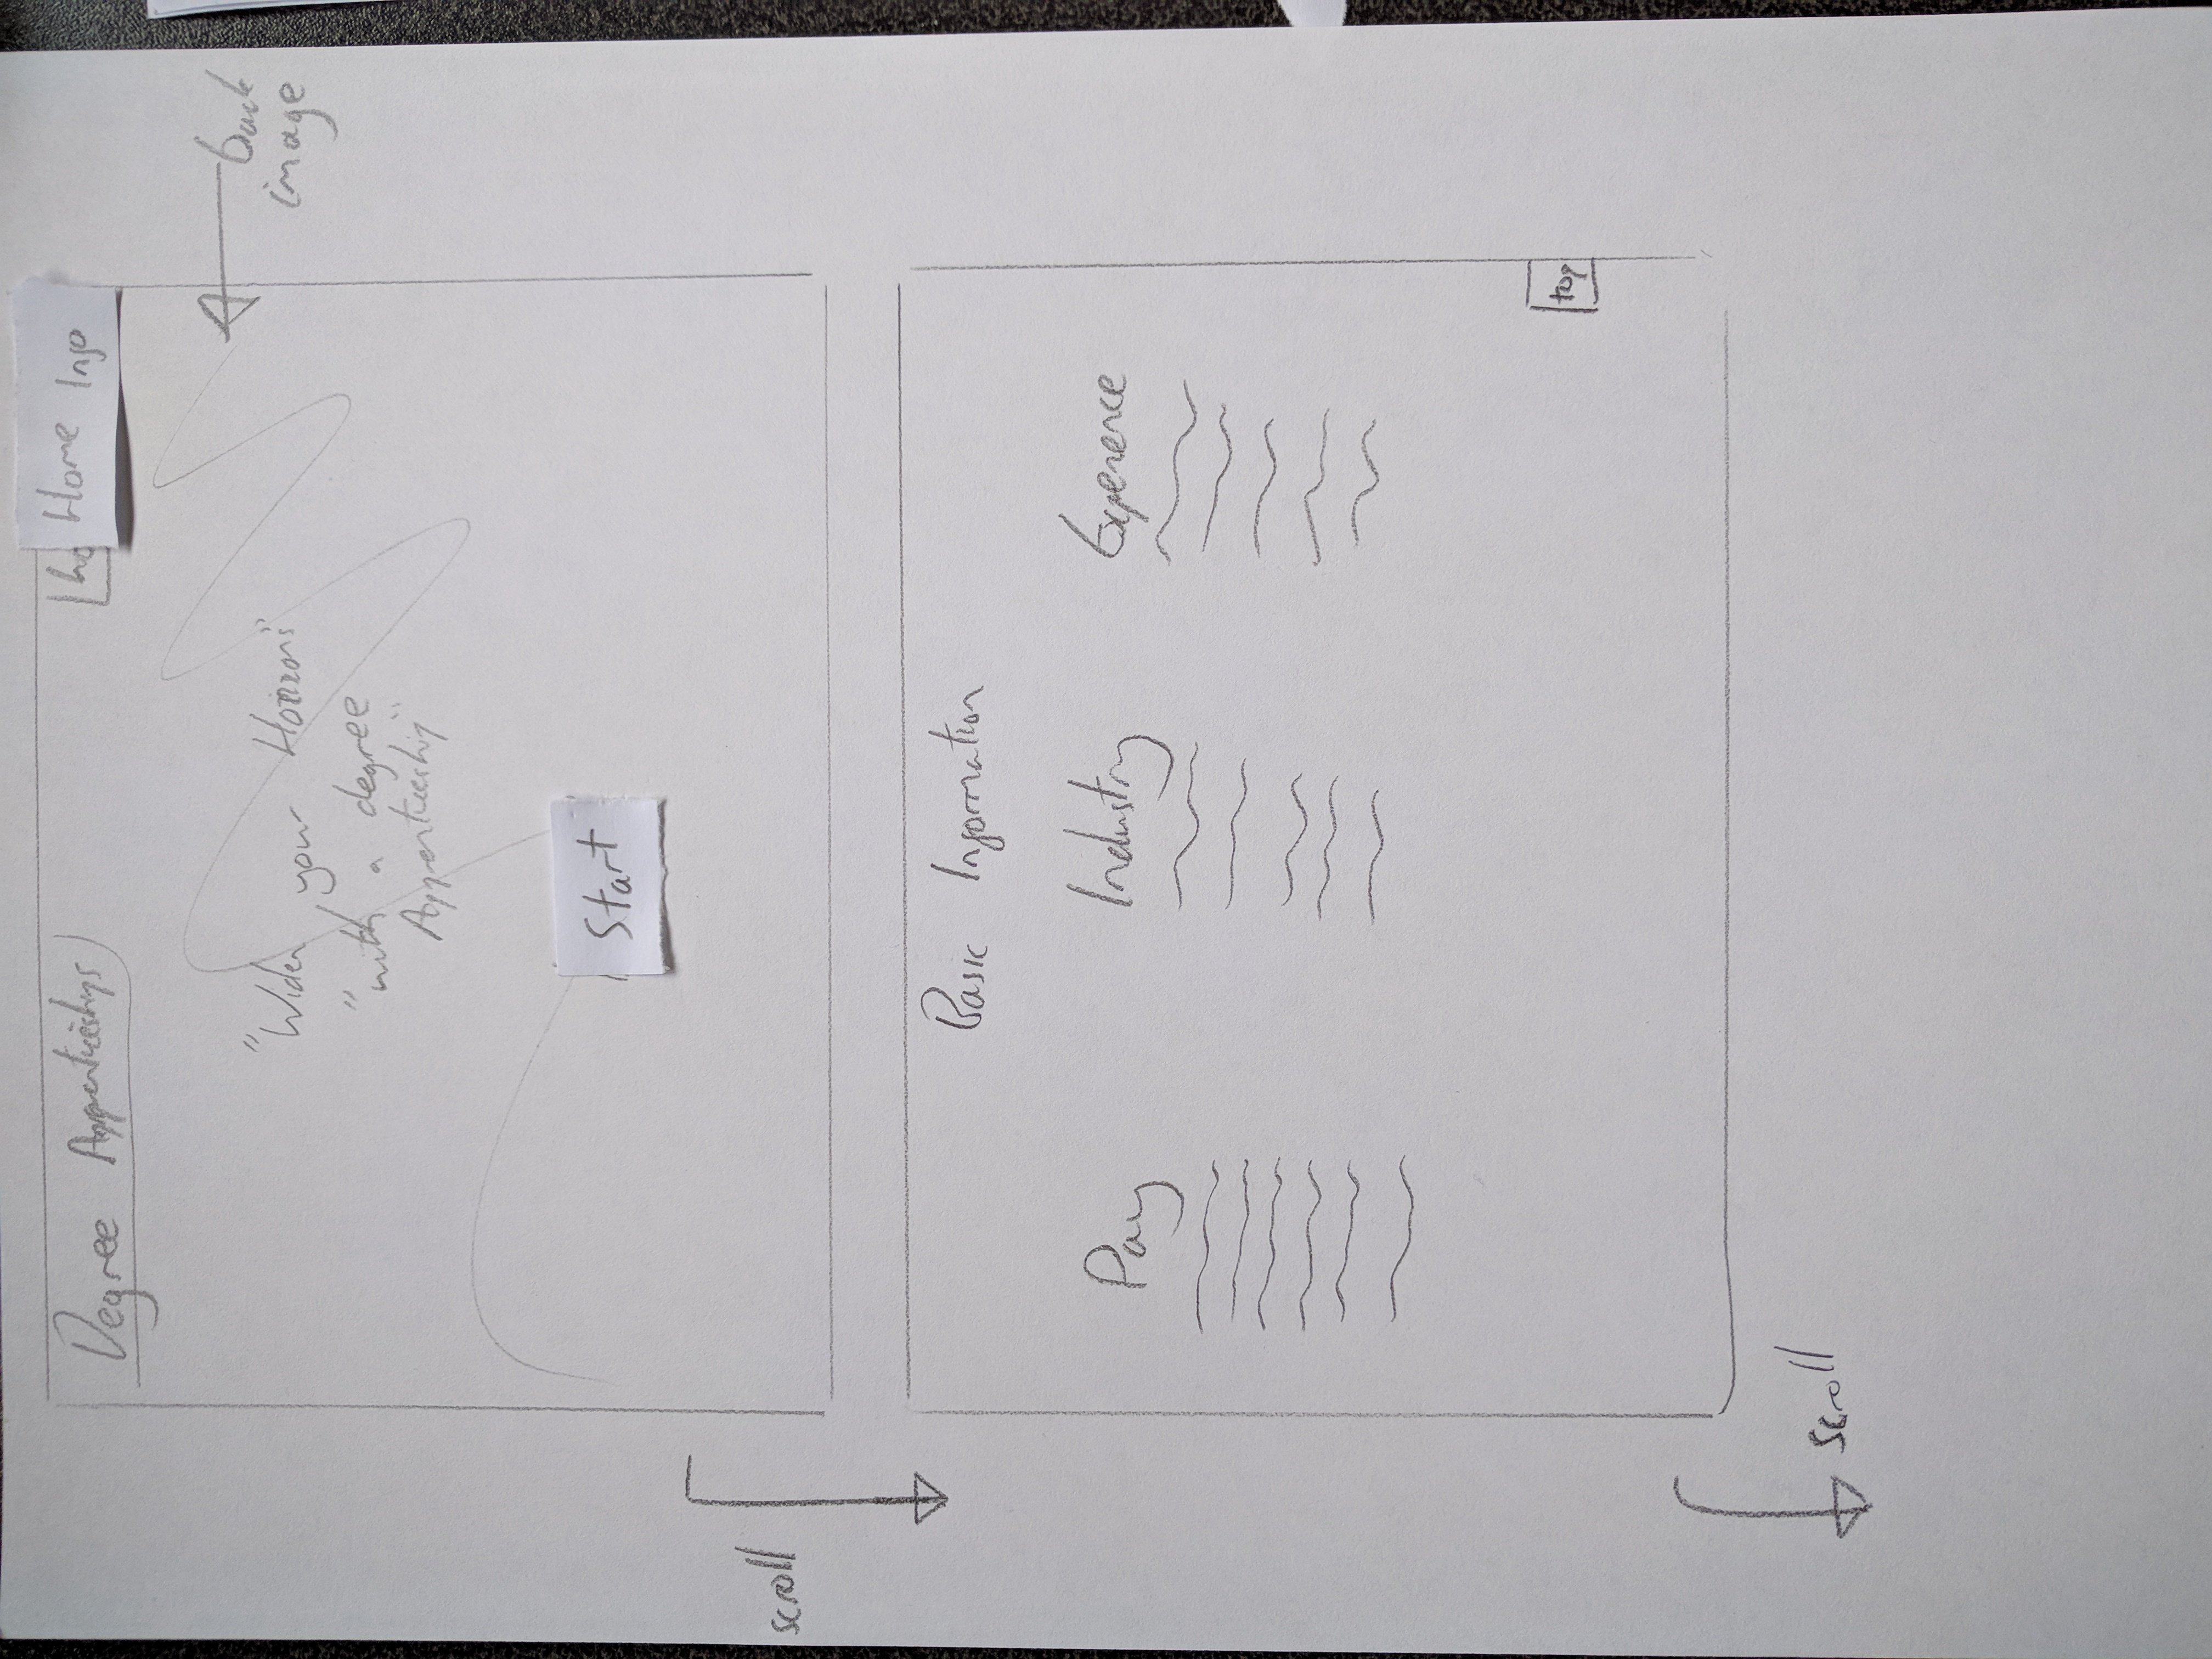 Degree Apprenticeships
Home Info
back
image
"Widen your Horizons"
"with a degree
Apprenticeship"
Start
scroll
Basic Information
Pay
Industry
Experence
top
scroll